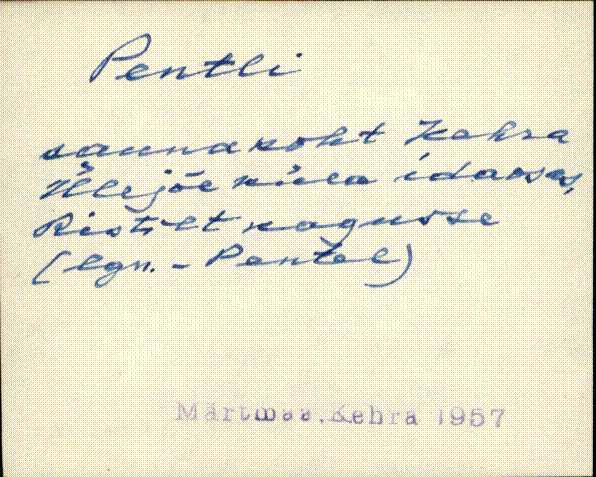 Pentli
saunakoht Kehra
Ülejõe küla idaosas,
Ristilt kagusse
(lgn. - Pentel)
Märtmaa, Kehra 1957